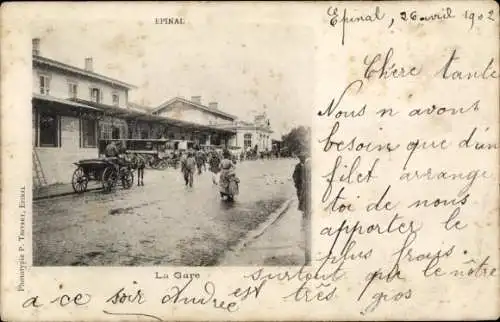 EPINAL
Epinal, 26 avril 1902
Chère tante
Nous n avont
besoin que d'un
filet arrange
toi de nous
apporter le
plus frais
La Gare
surtout pas que le nôtre
à ce soir Andrée, est très gros
Phototypie P. Testart, Epinal